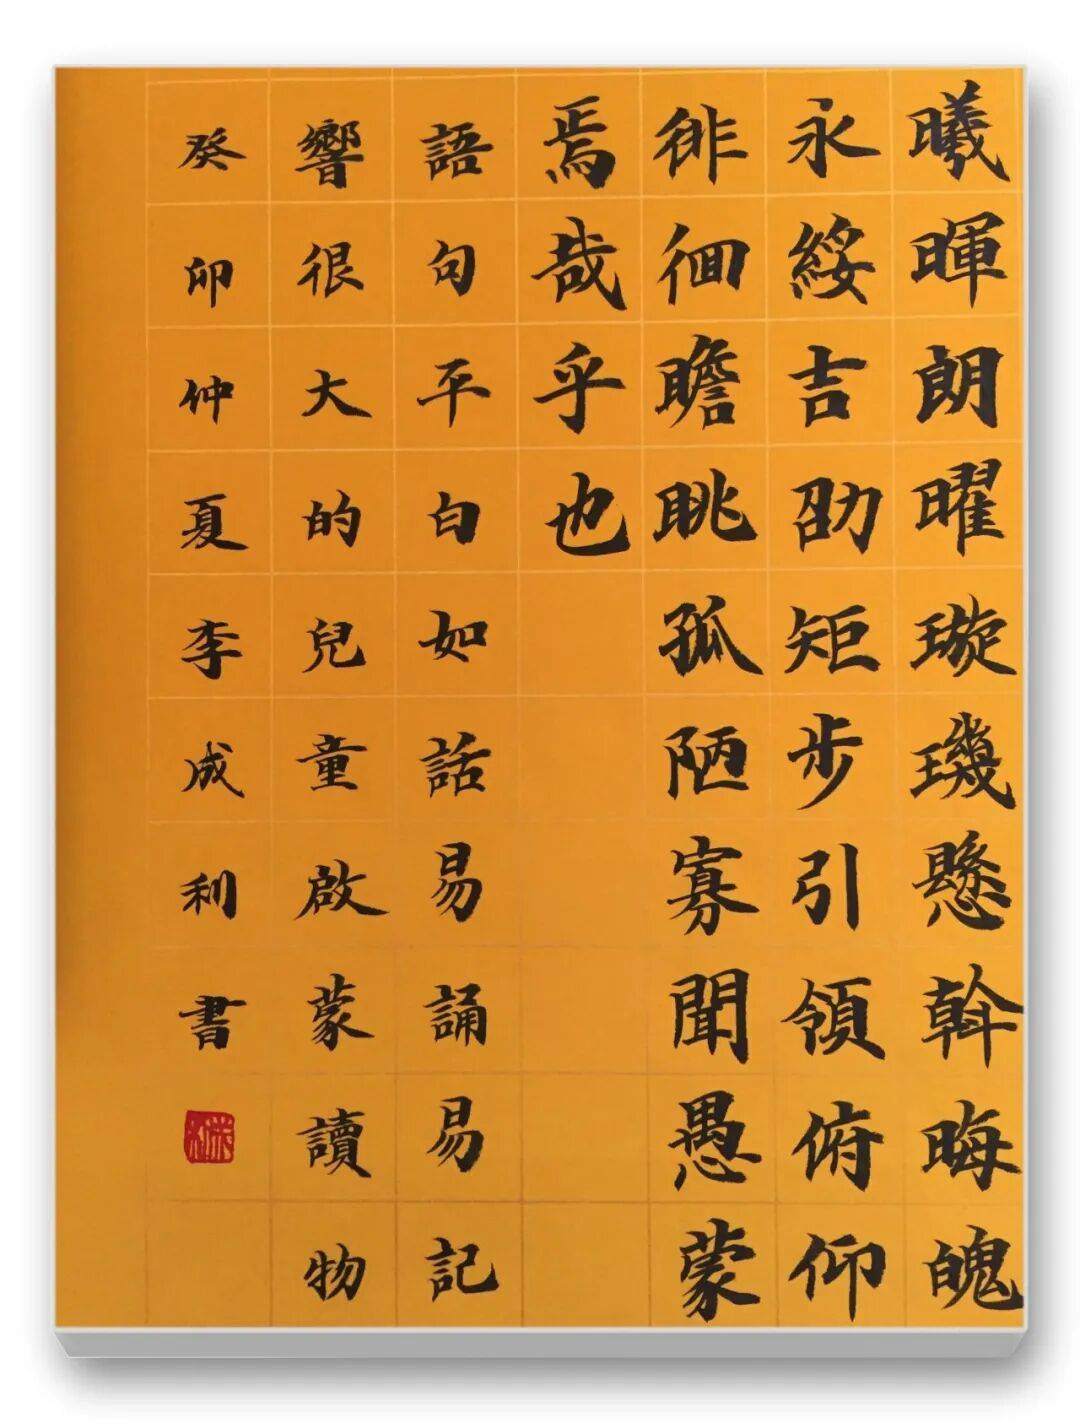 曦暉朗曜璇璣懸斡晦魄
永綏吉劭矩步引領俯仰
徘徊瞻眺孤陋寡聞愚蒙
焉哉乎也
語句平白如話易誦易記
響很大的兒童啟蒙讀物
癸卯仲夏李成利書